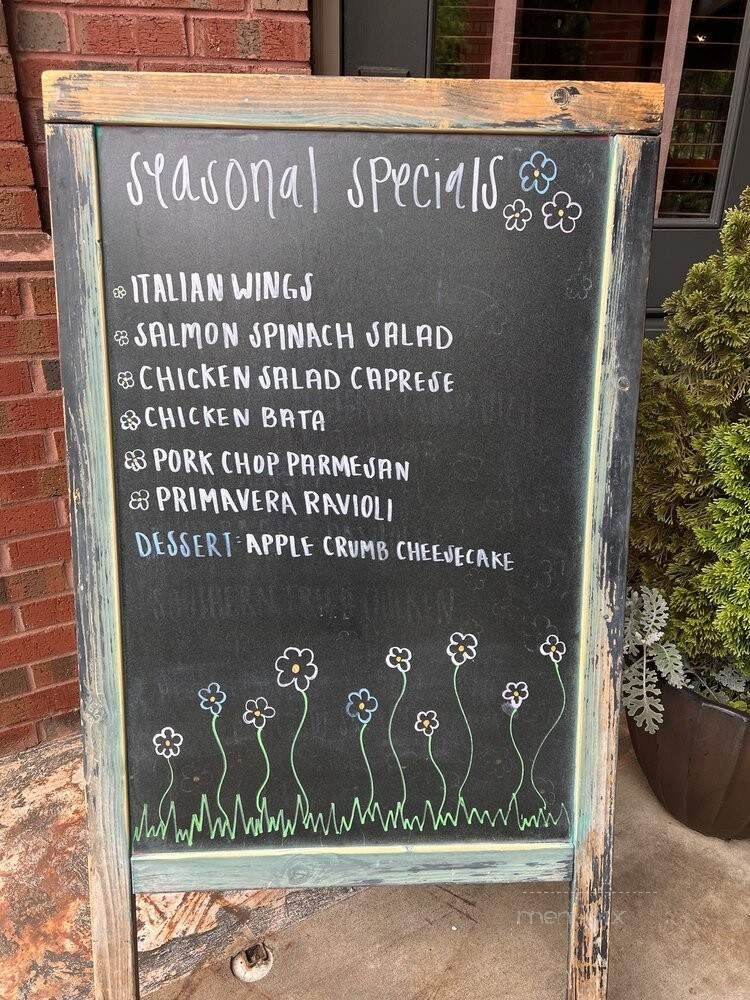 seasonal specials
ITALIAN WINGS
SALMON SPINACH SALAD
CHICKEN SALAD CAPRESE
CHICKEN BATA
PORK CHOP PARMESAN
PRIMAVERA RAVIOLI
DESSERT: APPLE CRUMB CHEESECAKE